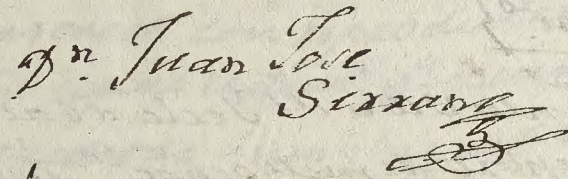 Dn. Juan Jose
Sirrano